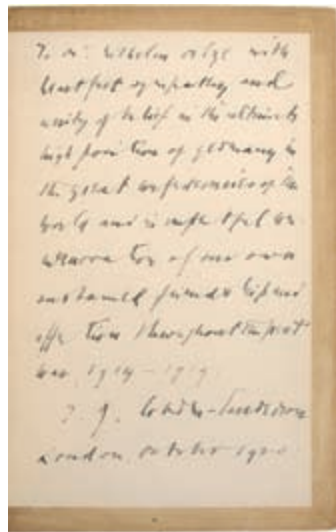 To Dr. Wilhelm with
heartfelt sympathy and
unity of belief in the ultimate
high position of Germany in
the great of the
world and in
of our own
sustained friendship and
affection throughout the great
war. 1914–1919.
T. J. Cobden-Sanderson
London. October 1920